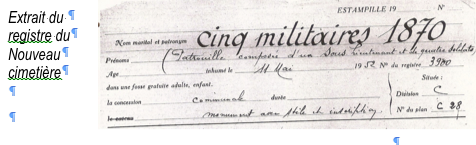 Extrait du
registre du
Nouveau
cimetière
ESTAMPILLE 19 N°
Nom marital et patronym. cinq militaires 1870
Prénoms (Patrouille composée d'un Sous Lieutenant et de quatre soldats
Age inhumé le 11 Mai 1952 N° du registre 3900
dans une fosse gratuite adulte, enfant. Située :
la concession Communale durée Division C
monument avec stèle et inscription N° du plan C 28